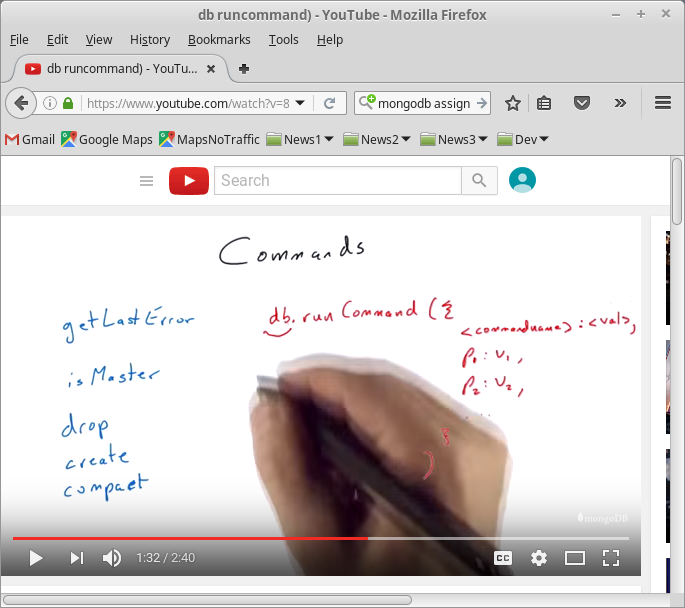 db runcommand) - YouTube - Mozilla Firefox
File Edit View History Bookmarks Tools Help
db runcommand) - YouTu...
https://www.youtube.com/watch?v=8
mongodb assign
Gmail Google Maps MapsNoTraffic News1 News2 News3 Dev
Search
Commands
getLastError
db.runCommand ({
<commandname> : <val>,
isMaster
p1 : v1,
p2 : v2,
...
drop
}
create
)
compact
mongoDB
1:32 / 2:40
CC